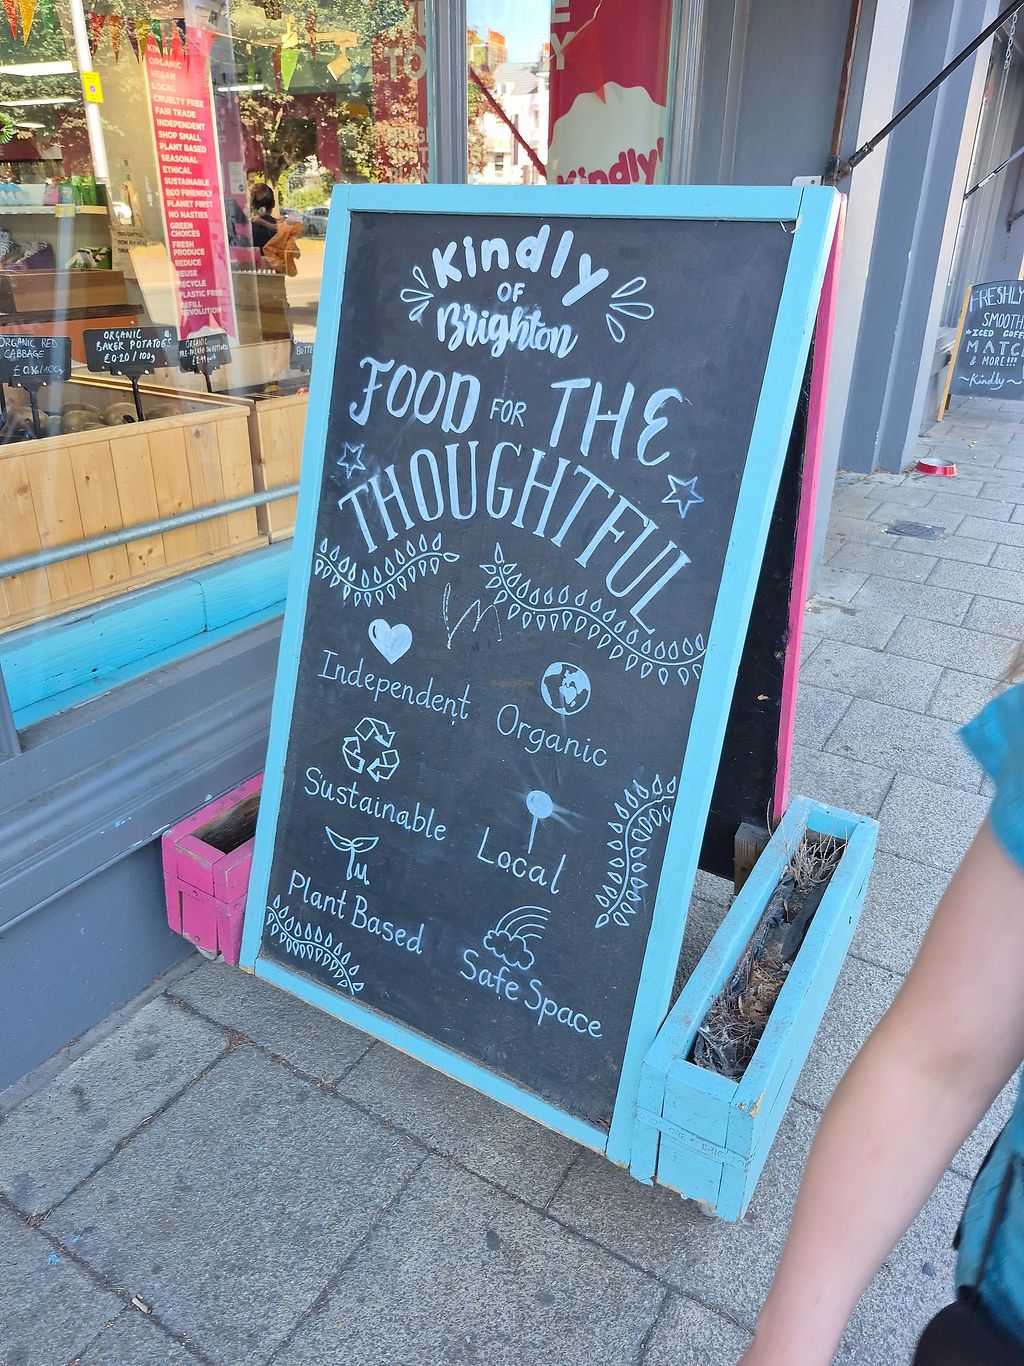 Kindly
OF
Brighton
FOOD FOR THE
THOUGHTFUL
Independent
Organic
Sustainable
Local
Plant Based
Safe Space
ORGANIC
VEGAN
LOCAL
CRUELTY FREE
FAIR TRADE
INDEPENDENT
SHOP SMALL
PLANT BASED
SEASONAL
ETHICAL
SUSTAINABLE
ECO FRIENDLY
PLANET FIRST
NO NASTIES
GREEN
CHOICES
FRESH
PRODUCE
REDUCE
REUSE
RECYCLE
PLASTIC FREE
REFILL
REVOLUTION
ORGANIC RED
CABBAGE
ORGANIC
BAKER POTATOES
£0.20 / 100g
ORGANIC
TO
Y
Kindly!
FRESHLY
SMOOTH
ICED COFF
MATC
& MORE!!!
~Kindly~